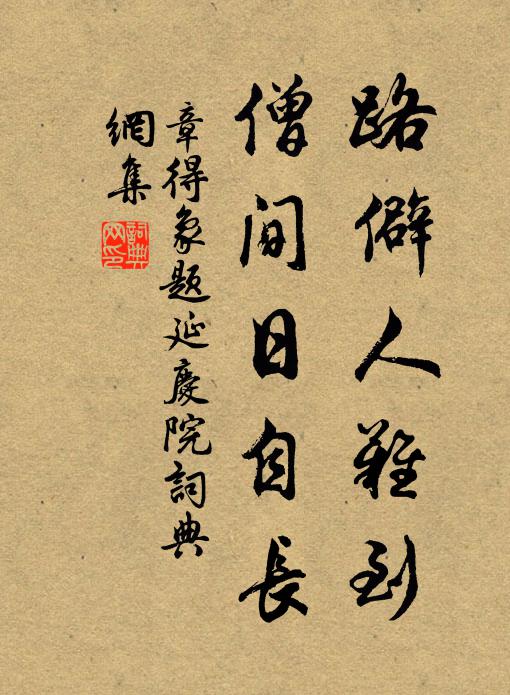 路僻人難到
僧间日自長
章得象题延慶院詞典
網集
詞典
网印